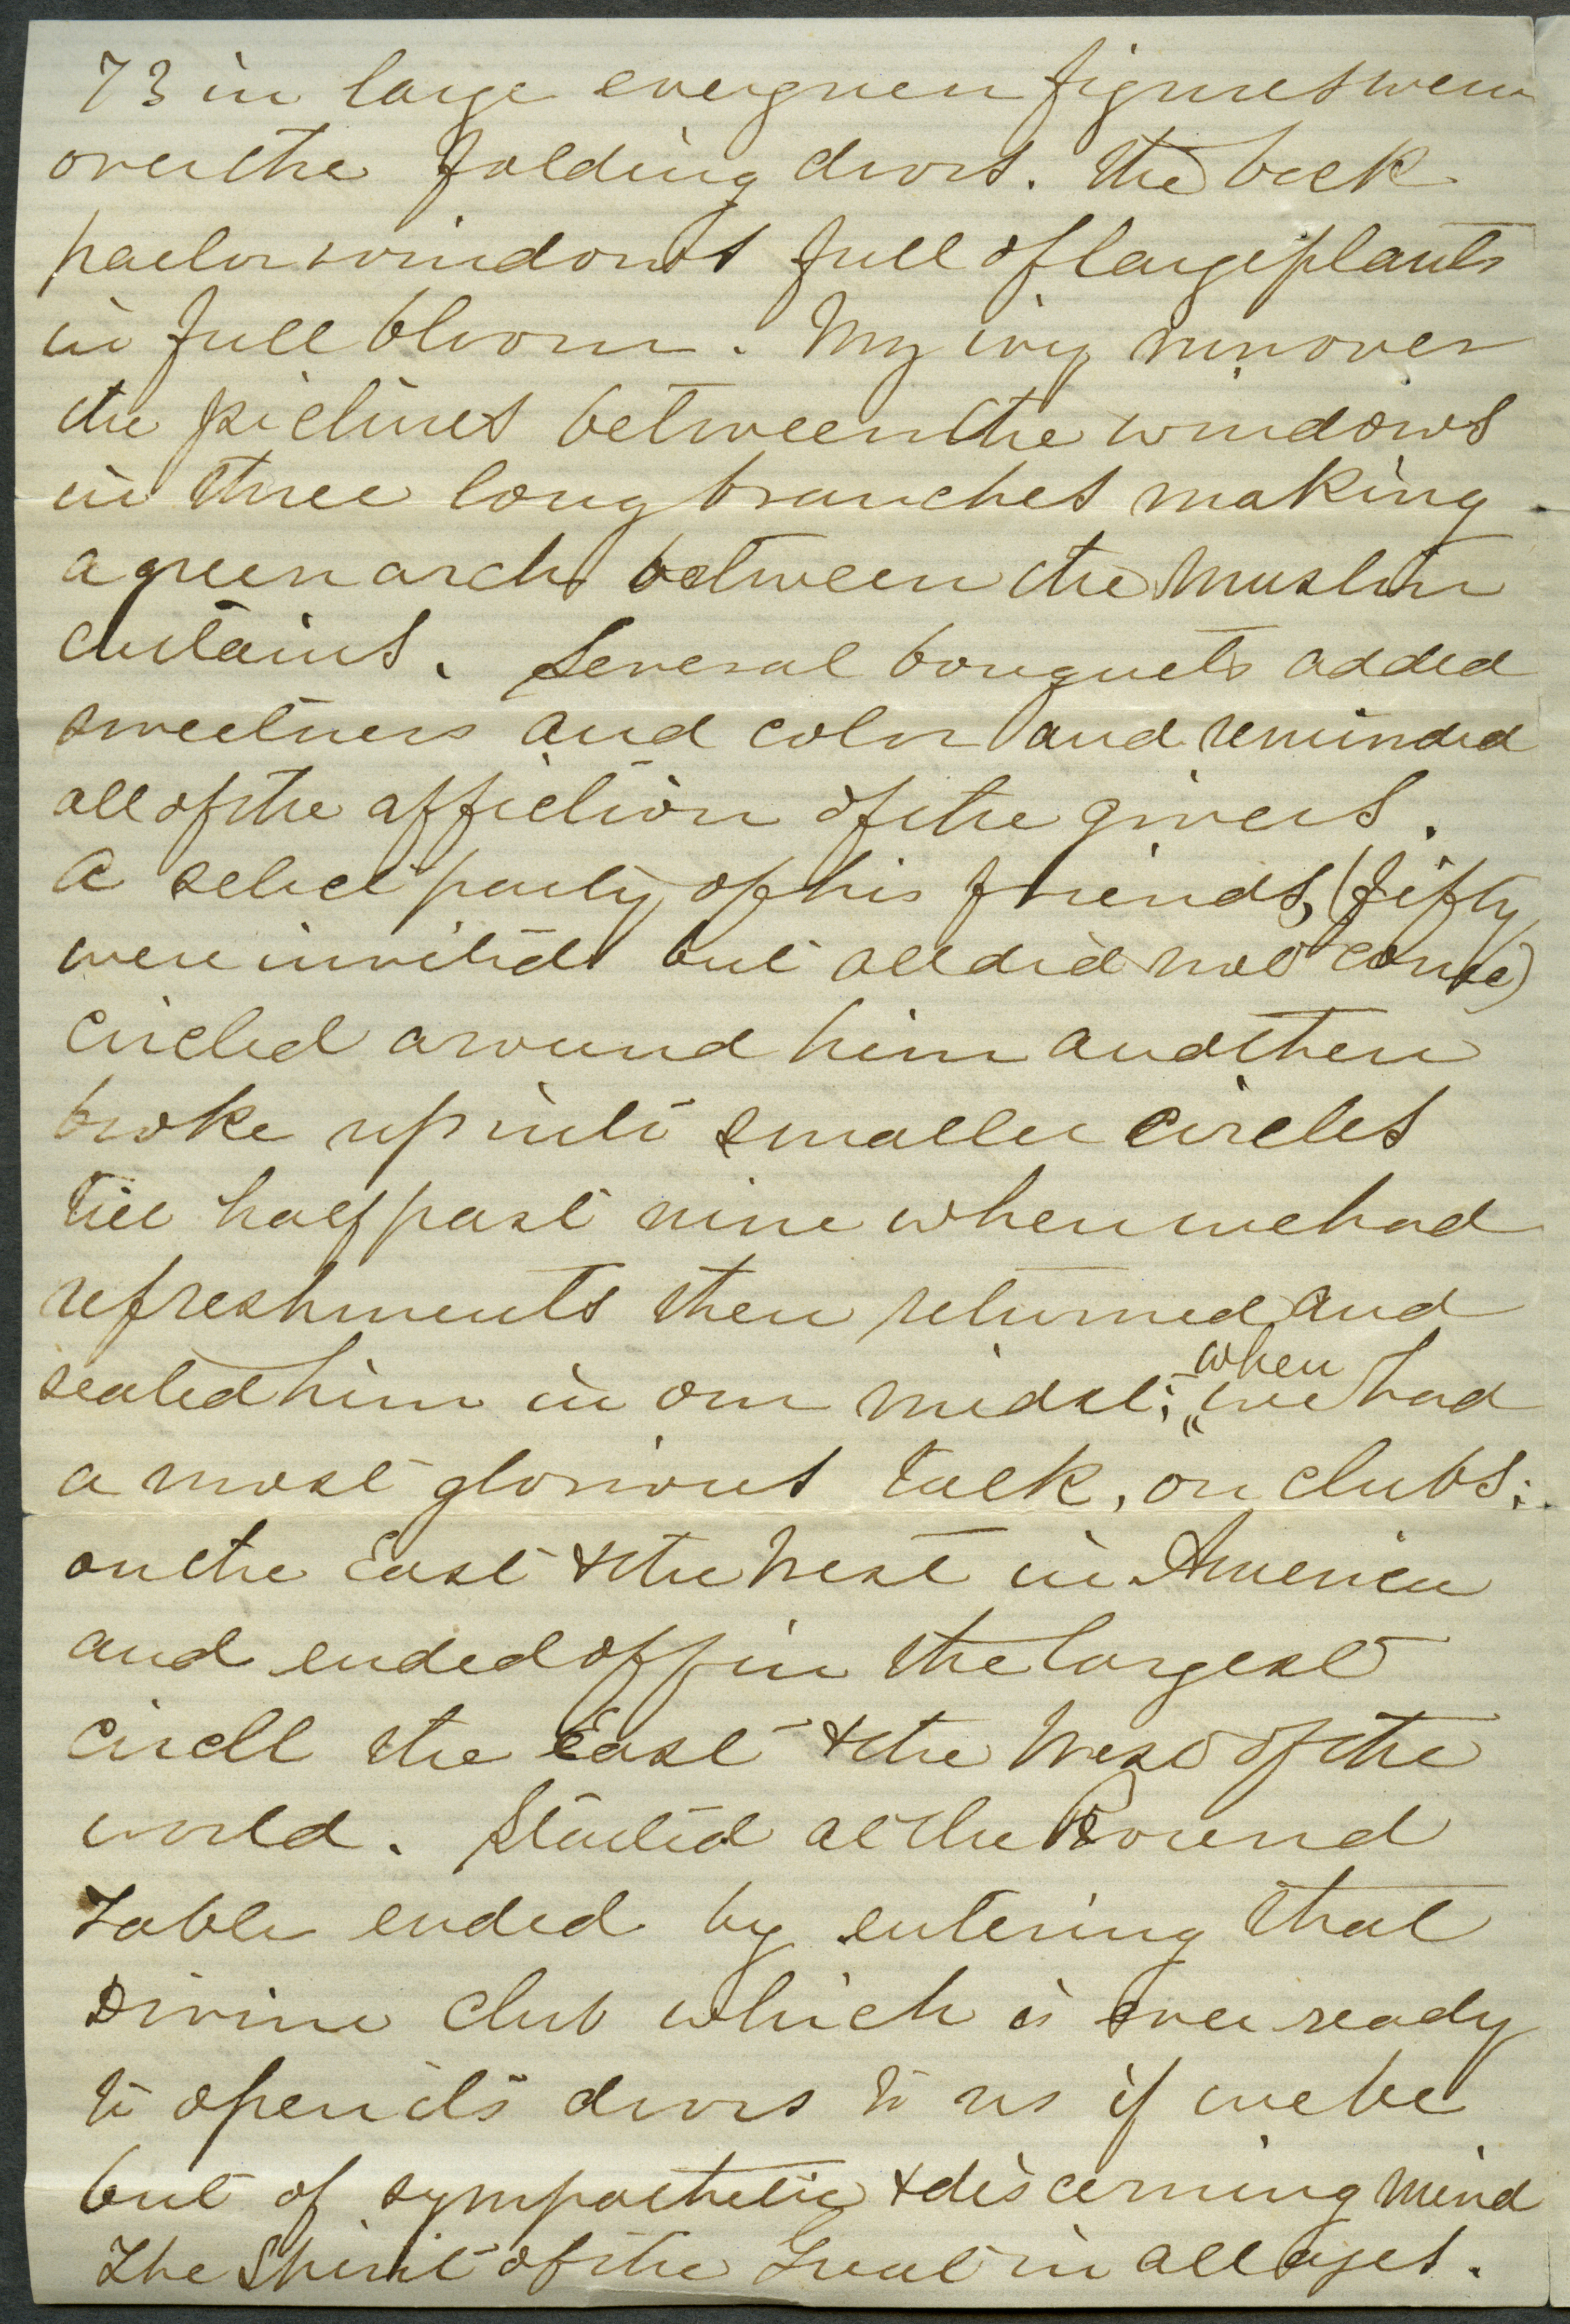 73 in large evergreen figures were
over the folding doors. The back
parlor windows full of large plants
in full bloom. My ivy run over
the pictures between the windows
in three long branches making
a green arch between the muslin
curtains. Several bouquets added
sweetness and color and reminded
all of the affection of the givers.
A select party of his friends, (fifty
were invited but all did not come)
circled around him and then
broke up into smaller circles
till half past nine when we had
refreshments then returned and
seated him in our midst; when we had
a most glorious talk, on clubs;
on the East & the West in America
and ended off in the largest
circle the East & the West of the
world. Started at the Round
Table ended by entering that
Divine club which is ever ready
to open its doors to us if we be
but of sympathetic & discerning mind
The Spirit of the Great in all ages.